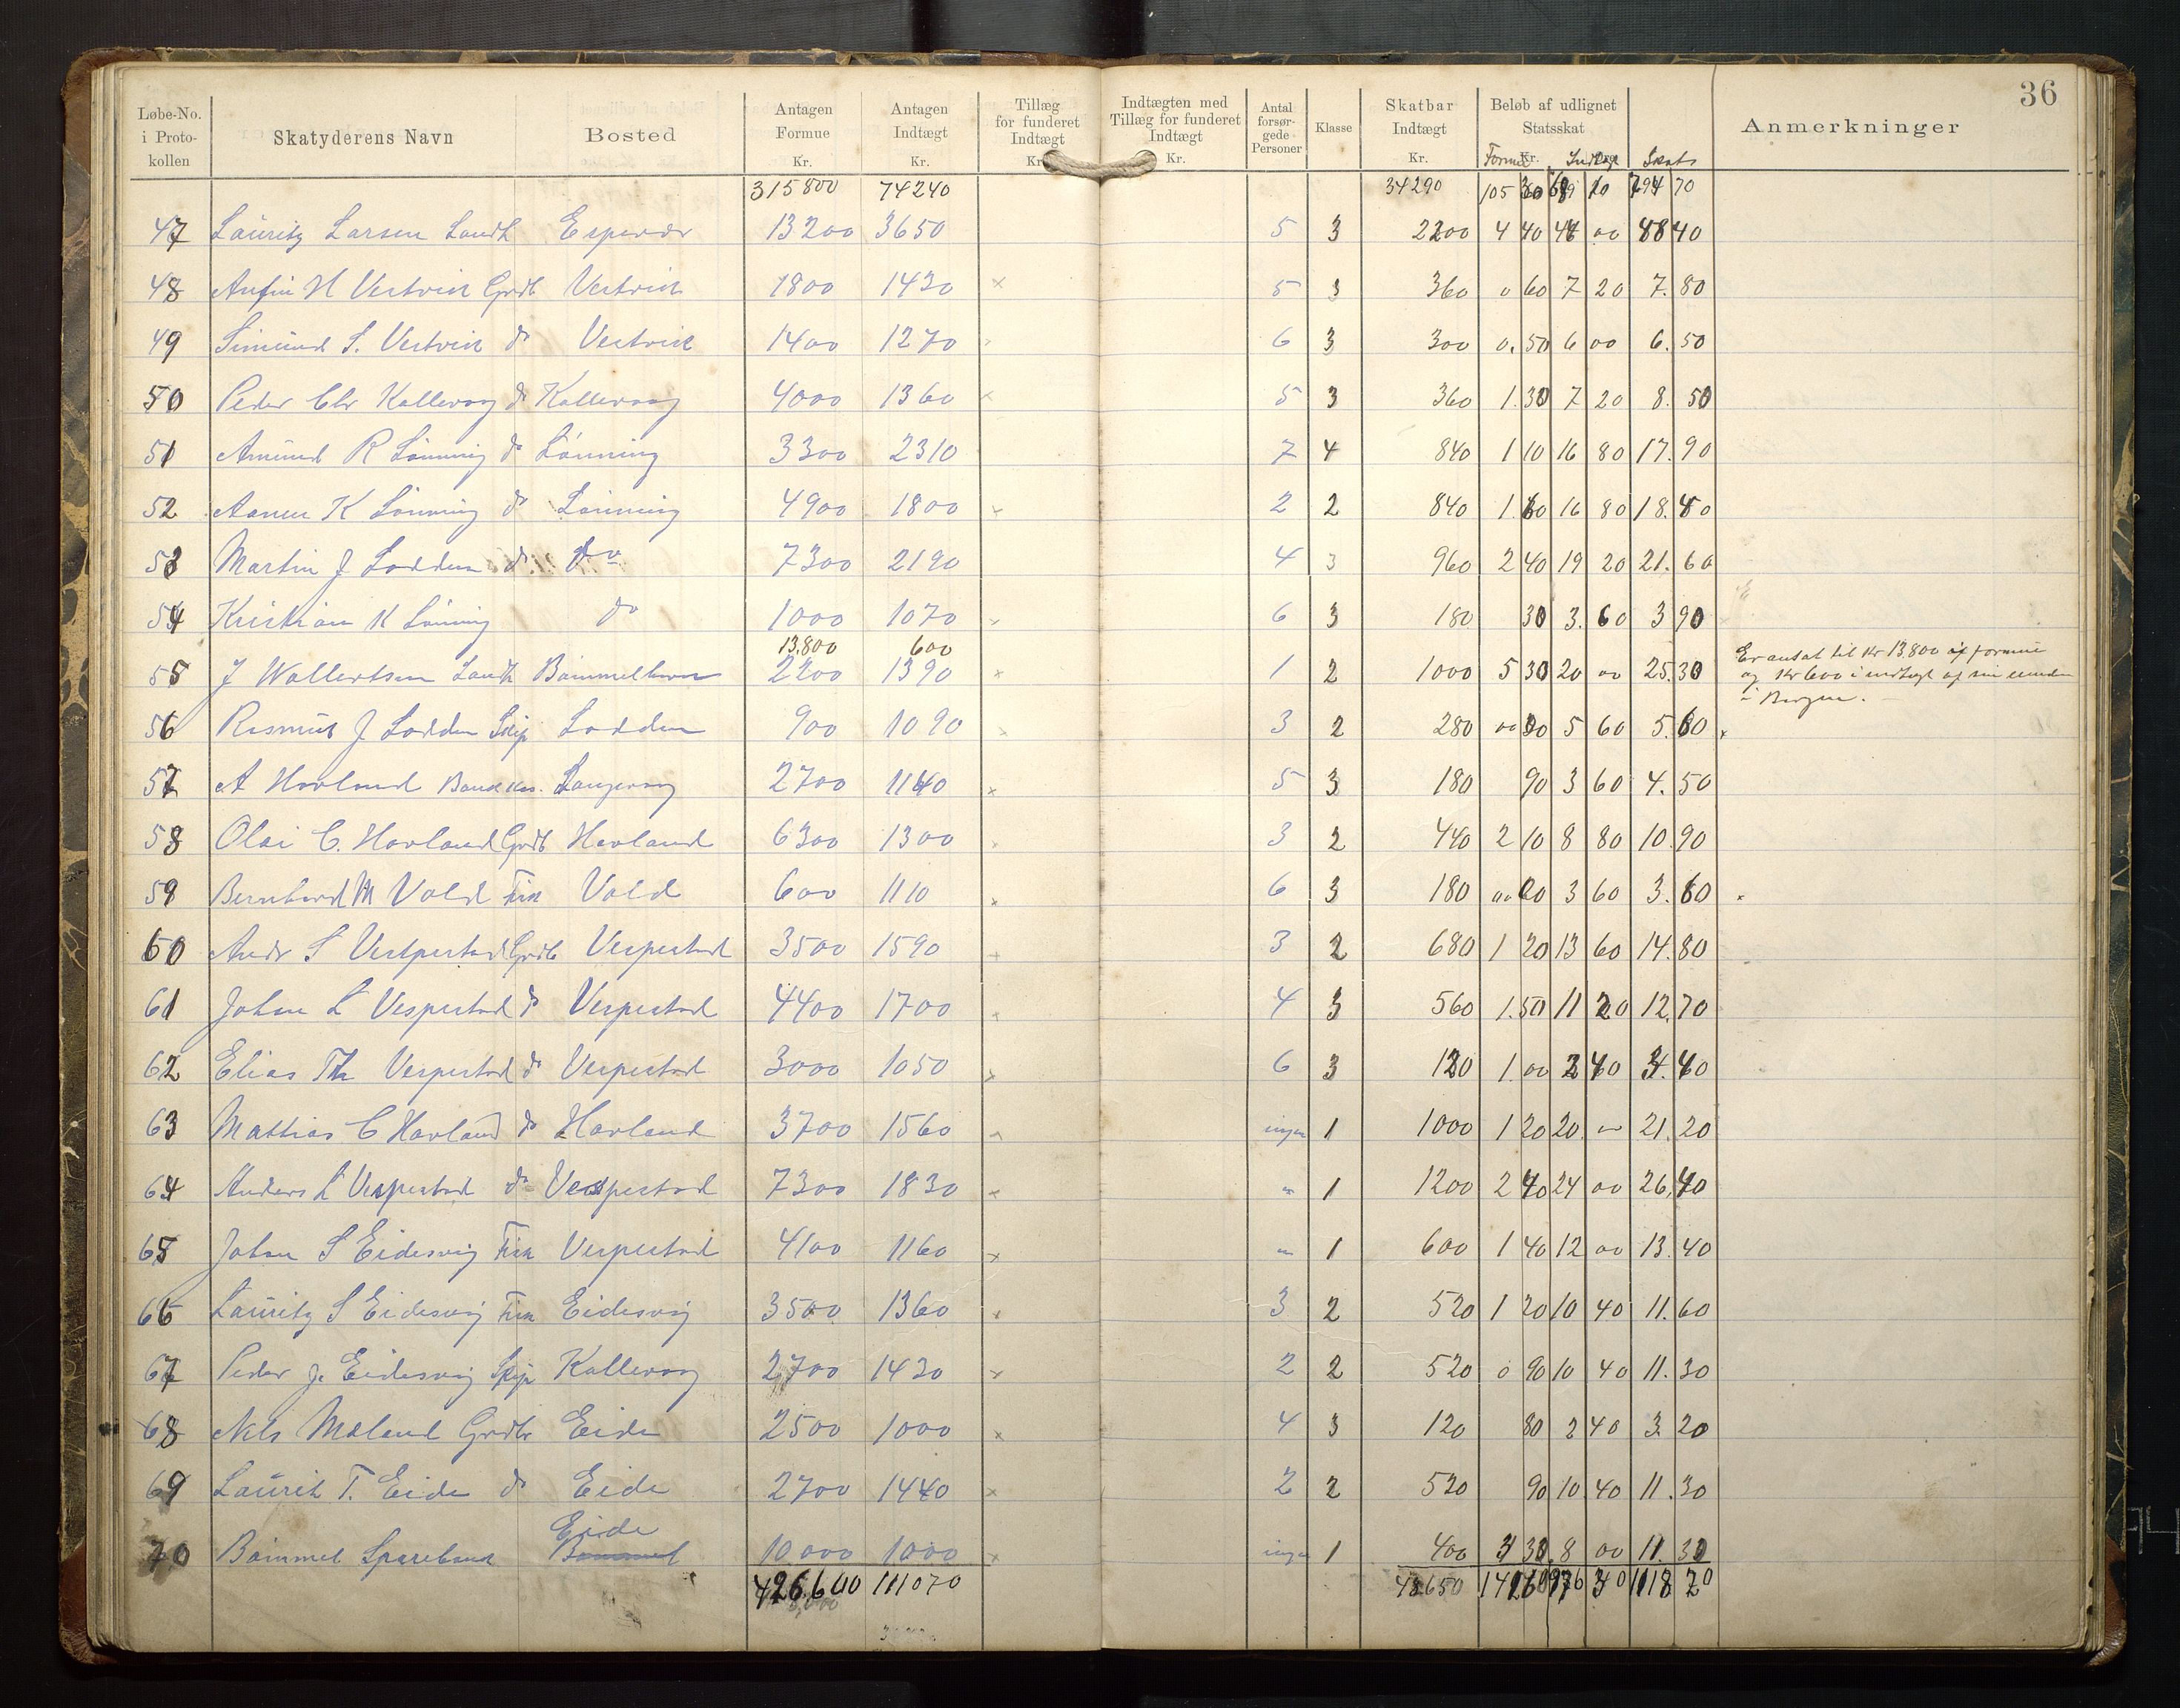 36
Løbe-No. i Proto- kollen Skatyderens Navn Bosted Antagen Formue Kr. Antagen Indtægt Kr. Tillæg for funderet Indtægt Kr. Indtægten med Tillæg for funderet Indtægt Kr. Antal forsør- gede Personer Klasse Skatbar Indtægt Kr. Beløb af udlignet Statsskat Kr. Anmerkninger
Formue Indtægt Skats
315800 74240 34290 105 30 689 10 794 70
47 Lauritz Larsen Landh Espevær 13200 3650 5 3 2200 4 40 44 00 48 40
48 Anfin H Vestvik Grdb Vestvik 1800 1430 × 5 3 360 0 60 7 20 7.80
49 Simund S. Vestvik do Vestvik 1400 1270 6 3 300 0.50 6 00 6.50
50 Peder Chr Kallevaag do Kallevaag 4000 1360 × 5 3 360 1.30 7 20 8.50
51 Amund R Lønning do Lønning 3300 2310 7 4 840 1 10 16 80 17.90
52 Aamen K Lønning do Lønning 4900 1800 × 2 2 840 1.60 16 80 18.40
53 Martin J Lodden do do 7300 2190 4 3 960 2 40 19 20 21.60
54 Kristian K Lønning do 1000 1070 6 3 180 30 3.60 3 90
13.800 600
55 J Wallertsen Landh Bømmelhavn 2200 1390 × 1 2 1000 5 30 20 00 25.30
Er antat til Kr 13.800 i formue
og Kr 600 i indtægt af sin eiendom
i Bergen.
56 Rasmus J Lodden Skip Lodden 900 1090 × 3 2 280 00 00 5 60 5.60
57 A Hovland Bankkas. Langevaag 2700 1140 × 5 3 180 90 3 60 4.50
58 Olai C. Hovland Grdb Hovland 6300 1300 3 2 440 2 10 8 80 10.90
59 Bernhard M Vold Fisk Vold 600 1110 × 6 3 180 00 00 3 60 3.60
60 Andr S Vestpestad Grdb Vespestad 3500 1590 × 3 2 680 1 20 13 60 14.80
61 Johan L Vespestad do Vespestad 4400 1700 4 3 560 1.50 11 20 12.70
62 Elias Th Vespestad do Vespestad 3000 1050 × 6 3 120 1.00 2 40 3.40
63 Mathias C Hovland do Hovland 3700 1560 ingen 1 1000 1 20 20 00 21.20
64 Anders L Vespestad do Vespestad 7300 1830 × " 1 1200 2 40 24 00 26.40
65 Johan S Eidesvig Fisk Vespestad 4100 1160 × " 1 600 1 40 12 00 13.40
66 Lauritz S Eidesvig Fisk Eidesvig 3500 1360 × 3 2 520 1 20 10 40 11.60
67 Peder J. Eidesvig Skip Kallevaag 2700 1430 × 2 2 520 0 90 10 40 11.30
68 Nils Møland Grdbr Eide 2500 1000 × 4 3 120 80 2 40 3.20
69 Laurits T. Eide do Eide 2700 1440 × 2 2 520 90 10.40 11.30
Eide
70 Bømmel Sparebank Bømmel 10000 1000 × ingen 1 400 3 30 8 00 11.30
426.600 111070 48650 142 60 976 30 1118 70